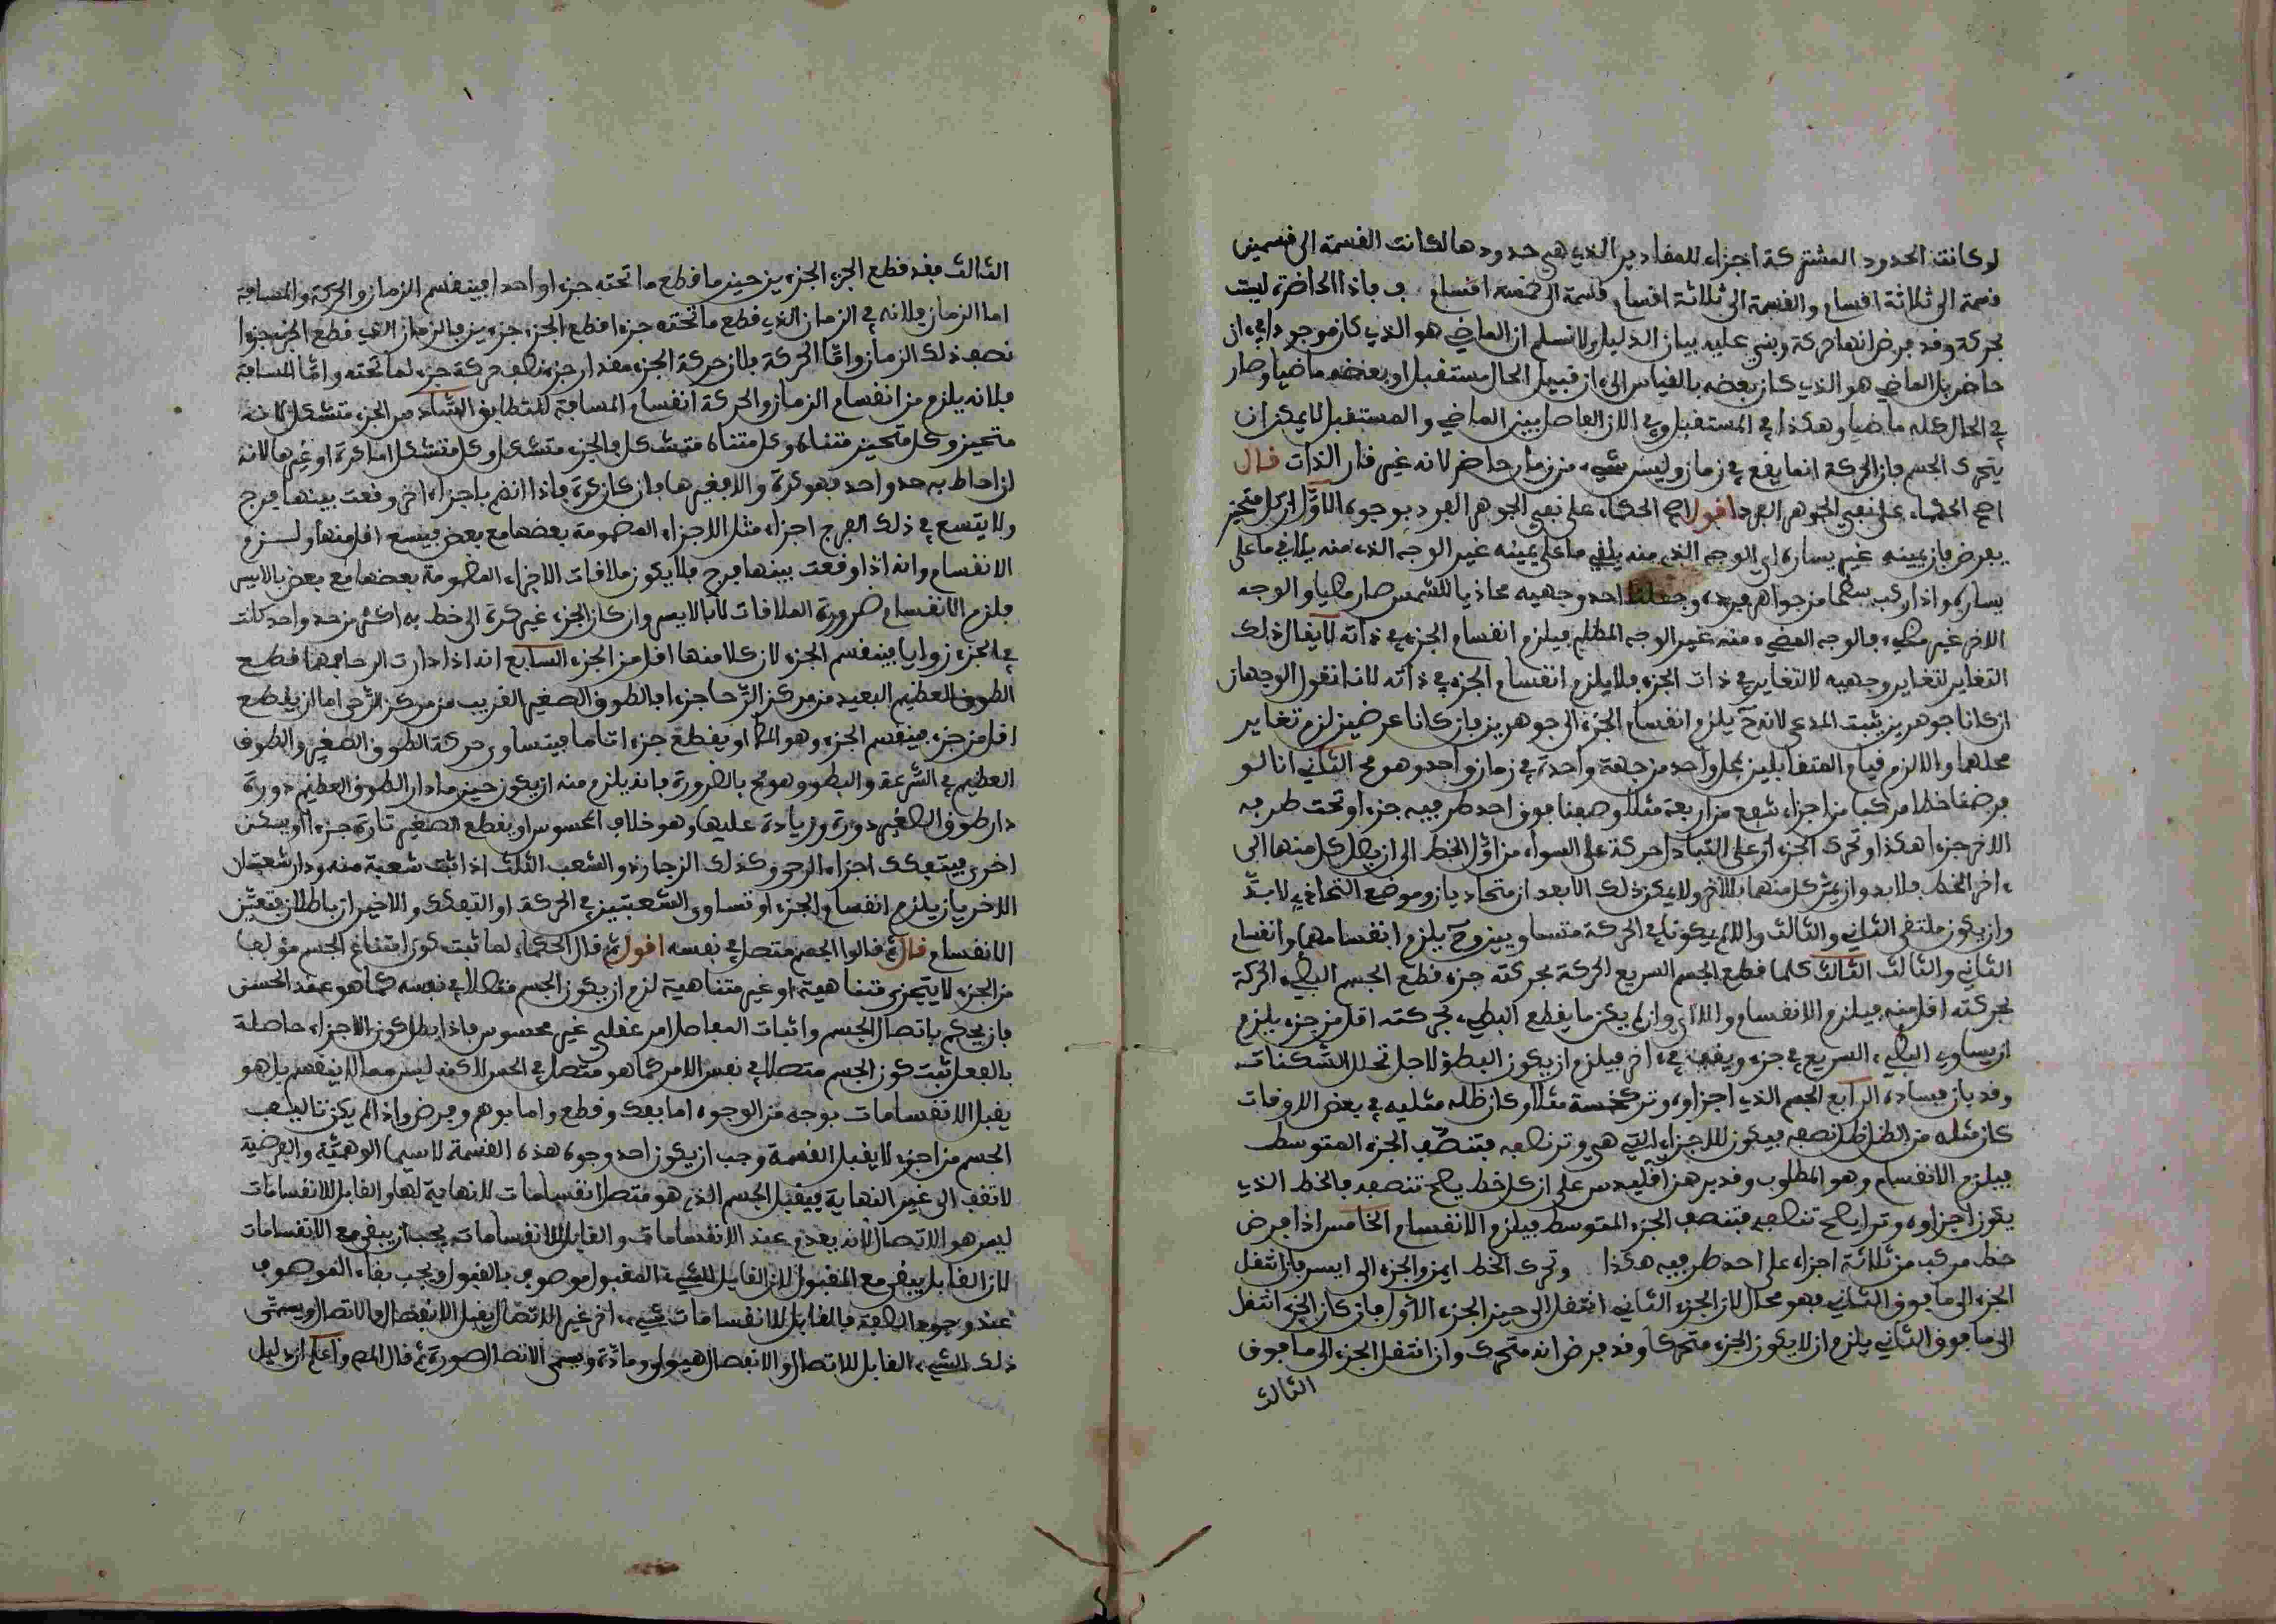 لو كانت الحدود المشتركة اجزاء للمقادير التي هي حدودها لكانت القسمة الى قسمين
قسمة الى ثلاثة اقسام والقسمة الى ثلاثة اقسام قسمة الى خمسة اقسام فاذا الحاضرة ليست
بحركة وقد فرض انها حركة وبني عليه بيان الدليل ولا نسلم ان الماضي هو الذي كان موجودا في ان
حاضر بل الماضي هو الذي كان بعضه بالقياس الى ان قبيل الحال مستقبلا وبعضه ماضيا وصار
في الحال كله ماضيا وهكذا في المستقبل وفي الان الفاصل بين الماضي والمستقبل لا يمكن ان
يتحرك الجسم فان الحركة انما يقع في زمان وليس شيء من زمان حاضر لانه غير قار الذات قال
احتج الحكماء على نفي الجوهر الفرد اقول احتج الحكماء على نفي الجوهر الفرد بوجوه الاول ان كل متحيز
يفرض فان يمينه غير يساره اي الوجه الذي منه يلاقي ما على يمينه غير الوجه الذي منه يلاقي ما على
يساره واذا ركب سطحا من جواهر فردة وجعلنا احد وجهيه محاذيا للشمس صار مضيا والوجه
الاخر غير مضيء فالوجه المضيء منه غير الوجه المظلم فيلزم انقسام الجزء في ذاته لا يقال ذلك
التغاير لتغاير وجهيه لا لتغاير في ذات الجزء فلا يلزم انقسام الجزء في ذاته لانا نقول الوجهان
ان كانا جوهرين يثبت المدعى لانه ح يلزم انقسام الجزء الى جوهرين فان كانا عرضين لزم تغاير
محلهما والا لزم قيام المتقابلين بمحل واحد من جهة واحدة في زمان واحد وهو مح الثاني انا لو
فرضنا خطا مركبا من اجزاء شفع من اربعة مثلا ووضعنا فوق احد طرفيه جزءا وتحت طرفه
الاخر جزءا هكذا وتحرك الجزء ان على التبادل حركة على السواء من اول الخط الى ان يصل كل منهما الى
اخر الخط فلا بد وان يمر كل منهما بالاخر ولا يمكن ذلك الا بعد ان يتحاديان وموضع التحاذي لا بد
وان يكون ملتقى الثاني والثالث والا لم يكونا في الحركة متساويين وح يلزم انقسامهما وانقسام
الثاني والثالث الثالث كلما قطع الجسم السريع الحركة بحركته جزء قطع الجسم البطيء الحركة
بحركته اقل منه فيلزم الانقسام والا اي وان لم يكن ما يقطع البطيء بحركته اقل من جزء يلزم
ان يساوي البطيء السريع في جزء ويقف في اخر فيلزم ان يكون البطؤ لاجل تخلل السكنات
وقد بان فساده الرابع الجسم الذي اجزاوه وتر كخمسة مثلا وكان ظله مثليه في بعض الاوقات
كان مثله من الظل ظل نصفه فيكون للاجزاء التي هي وتر نصف فتنصف الجزء المتوسط
فيلزم الانقسام وهو المطلوب وقد برهن اقليدس على ان كل خط يصح تنصيفه فالخط الذي
يكون اجزاوه وترا يصح تنصيفه فتنصف الجزء المتوسط فيلزم الانقسام الخامس اذا فرض
خط مركب من ثلاثة اجزاء على احد طرفيه هكذا وتحرك الخط ايمن والجزء الى ايسر فان انتقل
الجزء الى ما فوق الثاني فهو محال لان الجزء الثاني انتقل الى حيز الجزء الاول فان كان الجزء انتقل
الى ما فوق الثاني يلزم ان لا يكون الجزء متحركا وقد فرض انه متحرك وان انتقل الجزء الى ما فوق
الثالث
الثالث فقد قطع الجزء الجزءين حين ما قطع ما تحته جزءا واحدا فينقسم الزمان والحركة والمسافة
اما الزمان فلانه في الزمان الذي قطع ما تحته جزءا قطع الجزء جزءين فالزمان الذي قطع الجزء جزءا
نصف ذلك الزمان واما الحركة فلان حركة الجزء مقدار جزء نصف حركة جزء لما تحته واما المسافة
فلانه يلزم من انقسام الزمان والحركة انقسام المسافة لتطابق السادس الجزء متشكل لانه
متحيز وكل متحيز متناه وكل متناه متشكل فالجزء متشكل وكل متشكل اما كرة او غيرها لانه
ان احاط به حد واحد فهو كرة والا فغيرها فان كان كرة فاذا انضم باجزاء اخر وقعت بينها فرج
ولا يتسع في ذلك الفرج اجزاء مثل الاجزاء المضمومة بعضها مع بعض فيتسع اقل منها ولزم
الانقسام وانه اذا وقعت بينها فرج فلا يكون ملاقات الاجزاء المضمومة بعضها مع بعض بالاسر
فلزم الانقسام ضرورة الملاقات لا بالاسر وان كان الجزء غير كرة الى خط به اكثر من حد واحد كانت
في الجزء زوايا فينقسم الجزء لان كلا منها اقل من الجزء السابع انه اذا دارت الرحا فمهما قطع
الطوق العظيم البعيد من مركز الرحا جزءا فالطوق الصغير القريب من مركز الرحى اما ان يقطع
اقل من جزء فينقسم الجزء وهو المط او يقطع جزءا تاما فيتساوى حركة الطوق الصغير والطوق
العظيم في السرعة والبطو وهو مح بالضرورة فانه يلزم منه ان يكون حين ما دار الطوق العظيم دورة
دار طوق الصغير دورة وزيادة عليها وهو خلاف المحسوس او يقطع الصغير تارة جزءا ويسكن
اخرى فيتفكك اجزاء الرحى وكذلك الزجارة والشعب الثلث اذا ثبت شعبة منه ودار شعبتان
الاخريان يلزم انقسام الجزء او تساوى الشعبتين في الحركة او التفكك والاخيران باطلان فتعين
الانقسام قال ثم قالوا الجسم متصل في نفسه اقول ثم قال الحكماء لما ثبت كون امتناع الجسم مؤلفا
من الجزء لا يتجزى متناهية او غير متناهية لزم ان يكون الجسم متصلا في نفسه كما هو عند الحس
فان يحكم باتصال الجسم واثبات المفاصل امر عقلي غير محسوس فاذا بطل كون الاجزاء حاصلة
بالفعل ثبت كون الجسم متصلا في نفس الامر كما هو متصل في الحس لاكنه ليس مما لا ينقسم بل هو
يقبل الانقسامات بوجه من الوجوه اما بفك وقطع واما بوهم وفرض واذا لم يكن تاليف
الجسم من اجزاء لا يقبل القسمة وجب ان يكون احد وجوه هذه القسمة لاسيما الوهمية والفرضية
لا تقف الى غير النهاية فيقبل الجسم الذي هو متصل انقسامات لا نهاية لها والقابل للانقسامات
ليس هو الاتصال لانه يعدم عند الانقسامات والقابل للانقسامات يجب ان يبقى مع الانقسامات
لان القابل يبقى مع المقبول لان القابل للشيء المقبول موصوف بالقبول ويجب بقاء الموصوف
عند وجود الصفة فالقابل للانقسامات شيء اخر غير الاتصال يقبل الانفصال والاتصال ويسمى
ذلك الشيء القابل للاتصال والانفصال هيولى ومادة ويسمى الاتصال الصورة ثم قال المص واعلم ان دليل